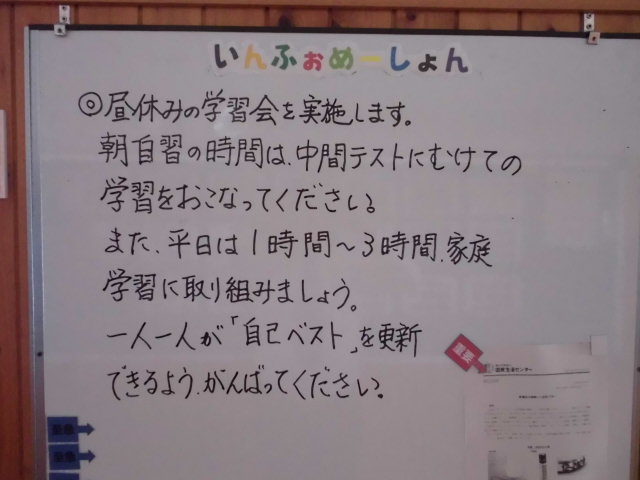 いんふぉめーしょん
◎昼休みの学習会を実施します。
朝自習の時間は、中間テストにむけての
学習をおこなってください。
また、平日は1時間～3時間、家庭
学習に取り組みましょう。
一人一人が「自己ベスト」を更新
できるよう、がんばってください。
重要
国民生活センター
至急
至急